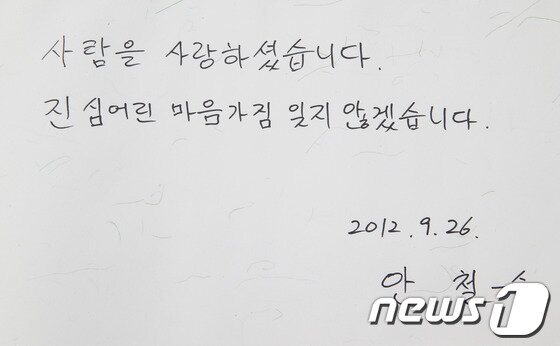 사람을 사랑하셨습니다.
진심어린 마음가짐 잊지 않겠습니다.
2012. 9. 26.
안 철 수
news1